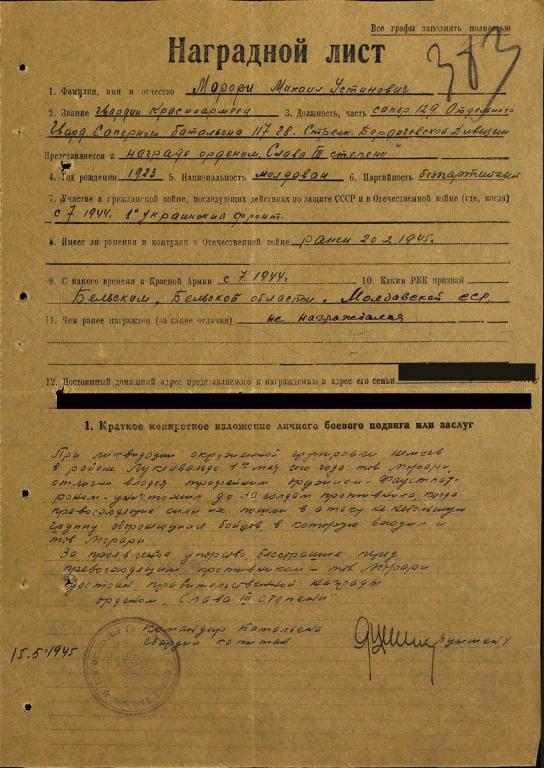 Все графы заполнять полностью
Наградной лист
383
1. Фамилия, имя и отчество Морарь Михаил Устинович
2. Звание гвардии Красноармеец 3. Должность, часть сапер 129 Отдельного
Гвард. Саперного батальона 117 гв. Стрелк. Бердичевской Дивизии
Представляется к награде орденом „Слава III степени"
4. Год рождения 1923 5. Национальность молдаван 6. Партийность беспартийный
7. Участие в гражданской войне, последующих действиях по защите СССР и в Отечественной войне (где, когда)
с 7.1944. 1й Украинский фронт.
8. Имеет ли ранения и контузии в Отечественной войне ранен 20.2.1945г.
9. С какого времени в Красной Армии с 7.1944г 10. Каким РВК призван
Бельским, Бельской области, Молдавской сср.
11. Чем ранее награжден (за какие отличия) не награждался
12. Постоянный домашний адрес представляемого к награждению и адрес его семьи
1. Краткое конкретное изложение личного боевого подвига или заслуг
При ликвидации окруженной группировки немцев
в районе Луккивальде 1го мая сего года тов Морарь,
отлично владея трофейным оружием-Фаустпат-
роном-уничтожил до 30 солдат противника, когда
превосходящие силы их пошли в атаку на небольшую
группу обороняющихся бойцов, в которую входил и
тов Морарь
За проявленное упорство, бесстрашие перед
превосходящим противником – тов Морарь
достоин правительственной награды
орденом „Слава III степени"
Командир батальона
гвардии капитан
15.5.1945